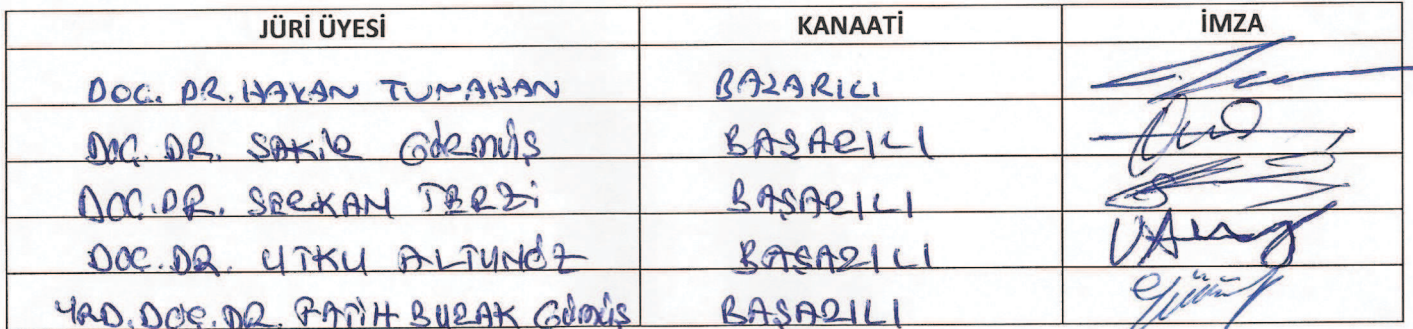 JÜRİ ÜYESİ KANAATİ İMZA
DOÇ. DR. HAKAN TUNAHAN BAŞARILI
DOÇ. DR. ŞAKİR GÖRMÜŞ BAŞARILI
DOÇ. DR. SERKAN TERZİ BAŞARILI
DOÇ. DR. UTKU ALTUNÖZ BAŞARILI
YRD. DOÇ. DR. FATİH BURAK GÜMÜŞ BAŞARILI